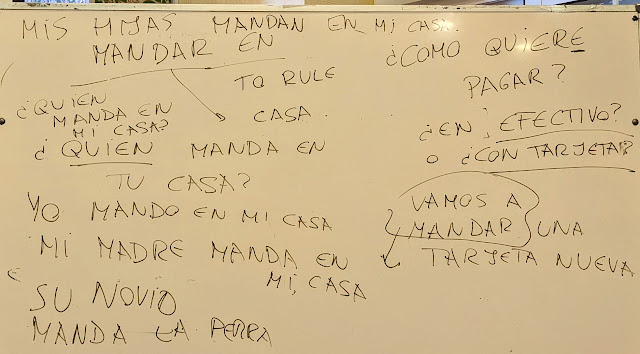 MIS HIJAS MANDAN EN MI CASA.
MANDAR EN
TO RULE
CASA.
¿QUIEN
MANDA EN
MI CASA?
¿QUIEN MANDA EN
TU CASA?
YO MANDO EN MI CASA
MI MADRE MANDA EN
MI CASA
SU NOVIO
MANDA LA PERRA
¿COMO QUIERE
PAGAR?
¿EN EFECTIVO?
O ¿CON TARJETA?
VAMOS A
MANDAR UNA
TARJETA NUEVA